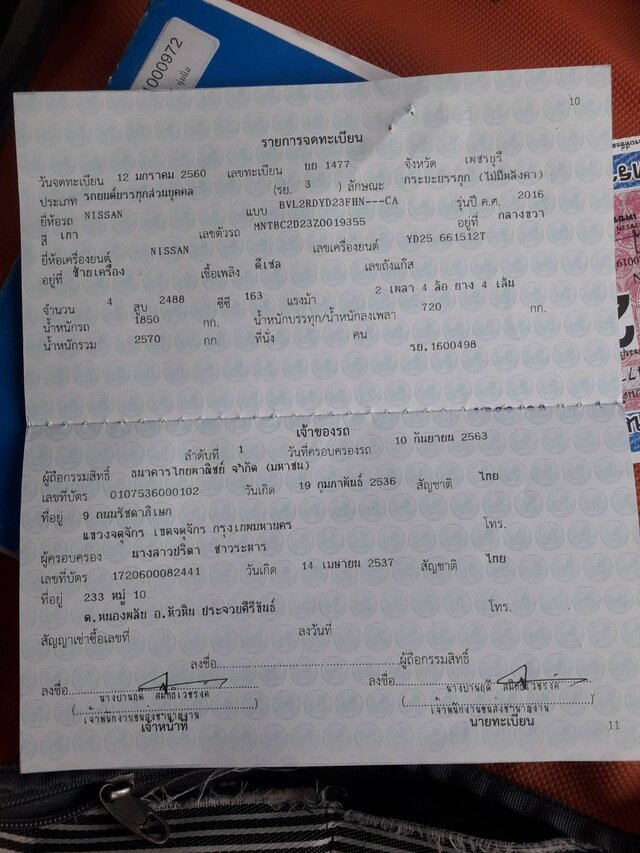 1000972
10
รายการจดทะเบียน
วันจดทะเบียน 12 มกราคม 2560 เลขทะเบียน ขย 1477 จังหวัด เพชรบุรี
ประเภท รถยนต์บรรทุกส่วนบุคคล (รย. 3 ) ลักษณะ กระยะบรรทุก (ไม่มีหลังคา)
ยี่ห้อรถ NISSAN แบบ BVL2RDYD23FHN---CA รุ่นปี ค.ศ. 2016
สี เทา เลขตัวรถ MNTBC2D23Z0019355 อยู่ที่ กลางขวา
ยี่ห้อเครื่องยนต์ NISSAN เลขเครื่องยนต์ YD25 661512T
อยู่ที่ ซ้ายเครื่อง เชื้อเพลิง ดีเซล เลขถังแก๊ส
จำนวน 4 สูบ 2488 ซีซี 163 แรงม้า 2 เพลา 4 ล้อ ยาง 4 เส้น
น้ำหนักรถ 1850 กก. น้ำหนักบรรทุก/น้ำหนักลงเพลา 720 กก.
น้ำหนักรวม 2570 กก. ที่นั่ง คน
รย.1600498
เจ้าของรถ
ลำดับที่ 1 วันที่ครอบครองรถ 10 กันยายน 2563
ผู้ถือกรรมสิทธิ์ ธนาคารไทยพาณิชย์ จำกัด (มหาชน)
เลขที่บัตร 0107536000102 วันเกิด 19 กุมภาพันธ์ 2536 สัญชาติ ไทย
ที่อยู่ 9 ถนนรัชดาภิเษก
แขวงจตุจักร เขตจตุจักร กรุงเทพมหานคร โทร.
ผู้ครอบครอง นางสาวปริดา ชาวระหาร
เลขที่บัตร 1720600082441 วันเกิด 14 เมษายน 2537 สัญชาติ ไทย
ที่อยู่ 233 หมู่ 10
ต.หนองพลับ อ.หัวหิน ประจวบคีรีขันธ์ โทร.
สัญญาเช่าซื้อเลขที่ ลงวันที่
ลงชื่อ ผู้ถือกรรมสิทธิ์
ลงชื่อ ลงชื่อ
เจ้าพนักงานขนส่งชำนาญงาน เจ้าพนักงานขนส่งชำนาญงาน
เจ้าหน้าที่ นายทะเบียน
11